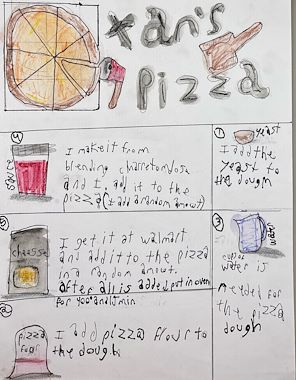 xan's
pizza
1
yeast
I add the
yeast to
the dough
4
sauce
I make it from
blending
and I add it to the
pizza (I add a random amout)
5
cheasse
I get it at walmart
and add it to the pizza
in a random amout.
after all is added put in oven
for 400° and
3
water
cup of
water is
needed for
the pizza
dough
2
pizza
I add pizza flour to
the dough